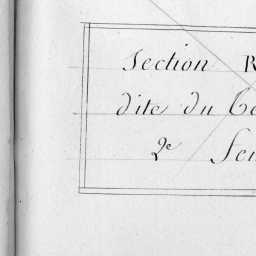 Section R
dite du
2e